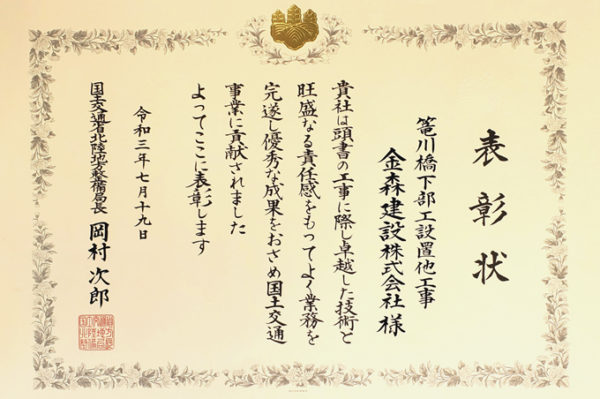 表彰状
篭川橋下部工設置他工事
金森建設株式会社 様
貴社は頭書の工事に際し卓越した技術と
旺盛なる責任感をもってよく業務を
完遂し優秀な成果をおさめ国土交通
事業に貢献されました
よってここに表彰します
令和三年七月十九日
国土交通省北陸地方整備局長 岡村次郎